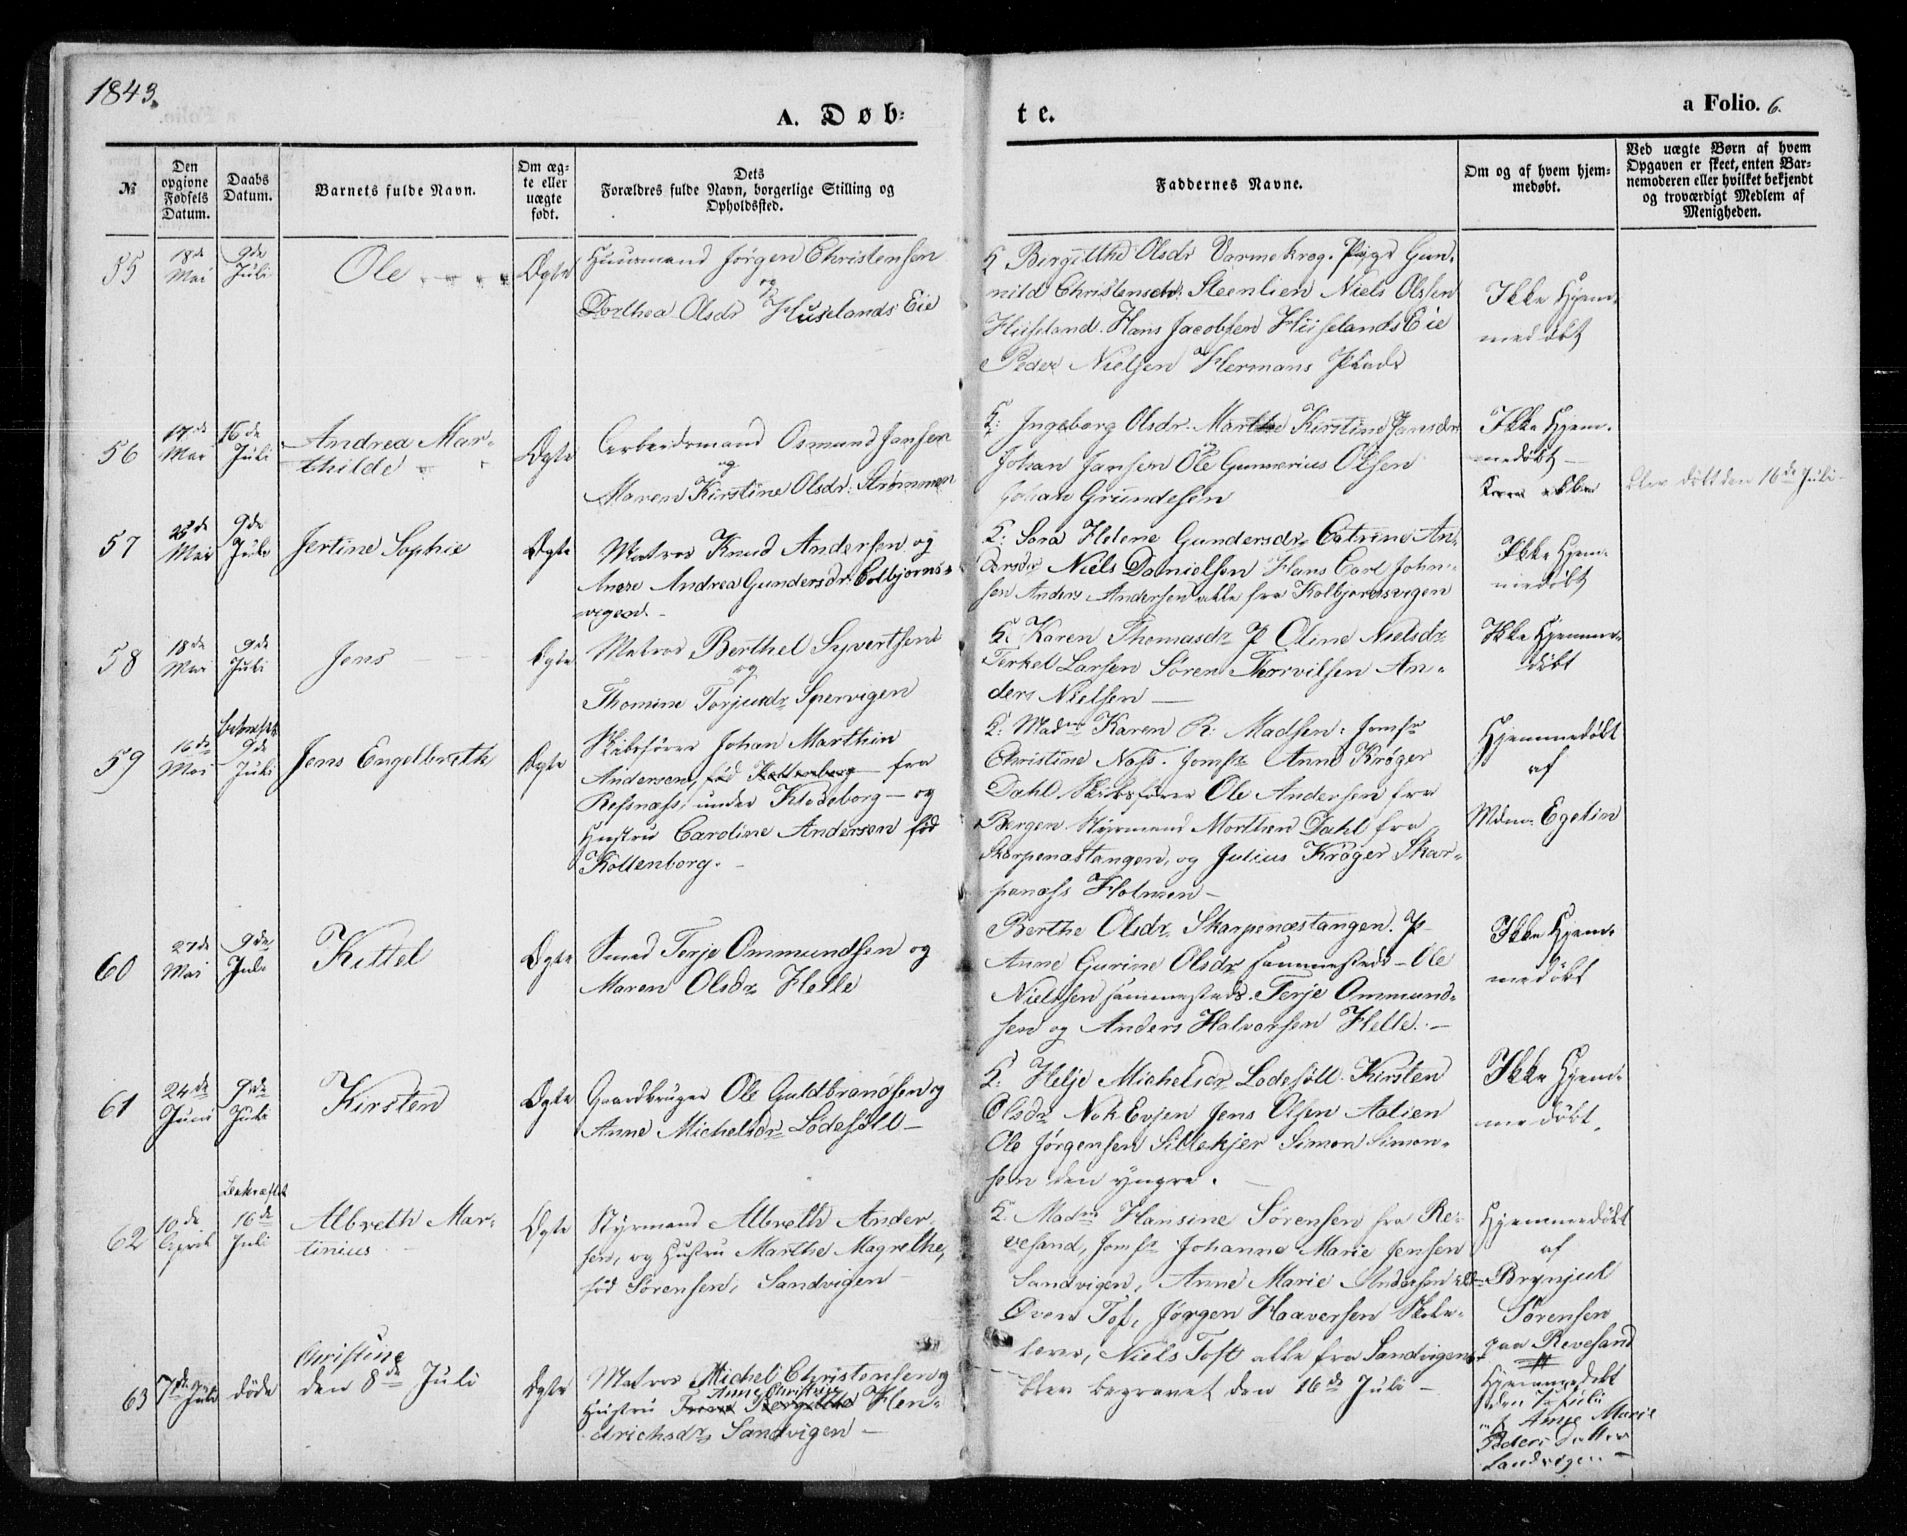 1843.
A. Døb-
te.
a Folio. 6.
№
Den opgivne Fødsels Datum.
Daabs Datum.
Barnets fulde Navn.
Om ægte eller uægte født.
Dets Forældres fulde Navn, borgerlige Stilling og Opholdssted.
Faddernes Navne.
Om og af hvem hjemmedøbt.
Ved uægte Børn af hvem Opgaven er skeet, enten Barnemoderen eller hvilket bekjendt og troværdigt Medlem af Menigheden.
55
18de Mai
9de Juli
Ole
Ægte
Huusmand Jörgen Christensen
og
Dorthea Olsdr Huselands Eie
Birgitthe Olsdr Varmekrog. Pige Gun-
nild Christensdr. Steenlien Niels Olsen
Huseland. Hans Jacobsen Huselands Eie
Peder Nielsen Hermans
Ikke Hjem-
medöbt
56
17de Mai
16de Juli
Andrea Mar-
thilde
Ægte
Arbeidsmand Osmund Jansen
og
Maren Kirstine Olsdr. Strömmen
Ingeborg Olsdr. Marthe Kirstine Jansdr
Johan Jansen Ole Gunnerius Olsen
Johan Grundesen
Ikke Hjem-
medöbt
blev döbt den 16de Juli
57
Mai
9de Juli
Jertine Sophie
Ægte
Matros Knud Andersen og
Andrea Gundersdr. Colbjorns-
vigen.
Sara Helene Gundersdr. Catrine An-
dersdr Niels Danielsen Hans Carl John-
sen Anders Andersen alle fra Kolbjornsvigen
Ikke Hjem-
medöbt
58
18de Mai
9de Juli
Jens
Ægte
Matros Berthel Syvertsen
og
Thomine Torjusdr. Spervigen
Karen Thomasdr P Oline Nielsdr
Terkel Larsen Sören Tarvilsen An-
ders Nielsen
Ikke Hjemme-
döbt
59
16de Mai
9de Juli
Jens Engelbreth
Ægte
Skibsförer Johan Marthin
Andersen, föd Koltenborg fra
Resnæs, under Klodeborg — og
Hustru Caroline Andersen föd
Koltenborg.
Madm Karen R. Madsen: Jomfr
Christine Næss. Jomfr Anne Kröger
Dahl Skibsförer Ole Andersen fra
Bergen Styrmand Morthen Dahl fra
Skarpenæstangen, og Julius Kröger Skar-
penæss Holmen
Hjemmedöbt
af
Mdm. Egelin
60
27de Mai
9de Juli
Kittel
Ægte
Smed Terje Ommundsen og
Maren Olsdr. Helle
Berthe Olsdr. Skarpenæstangen. P
Anne Gurine Olsdr sammesteds — Ole
Nielsen sammesteds. Terje Ommund-
sen og Anders Halvorsen Helle.
Ikke Hjem-
medöbt
61
24de Juni
9de Juli
Kirsten
Ægte
Gaardbruger Ole Guldbrandsen og
Anne Michelsdr Lodesöll
Helje Michelsdr Lodesöll. Kirsten
Olsdr. Evjen Jens Olsen Aalien
Ole Jörgensen Sillekjer Simon Simon-
sen den yngre.
Ikke Hjem-
medöbt.
62
10de April
Bekræftet
16de Juli
Albreth Mar-
tinius
Ægte
Styrmand Albreth Ander-
sen, og Hustru Marthe Magrethe,
föd Sörensen, Sandvigen
Madm Hansine Sörensen fra Re-
vesand, Jomfr Johanne Marie Jensen
Sandvigen, Anne Marie Andersen
Öven Tof, Jörgen Haaversen Skole-
lærer, Niels Toft alle fra Sandvigen
Hjemmedöbt
af
Brynjul
Sörensen
paa Revesand
63
7de Juli
döde
Christine
den 8de Juli
Ægte
Matros Michel Christensen og
Anne Christine
Hustru Hen-
drichsdr. Sandvigen
blev begravet den 16de Juli
Hjemmedöbt
den 7 Juli
af Anne Marie
Peders Datter
Sandvigen